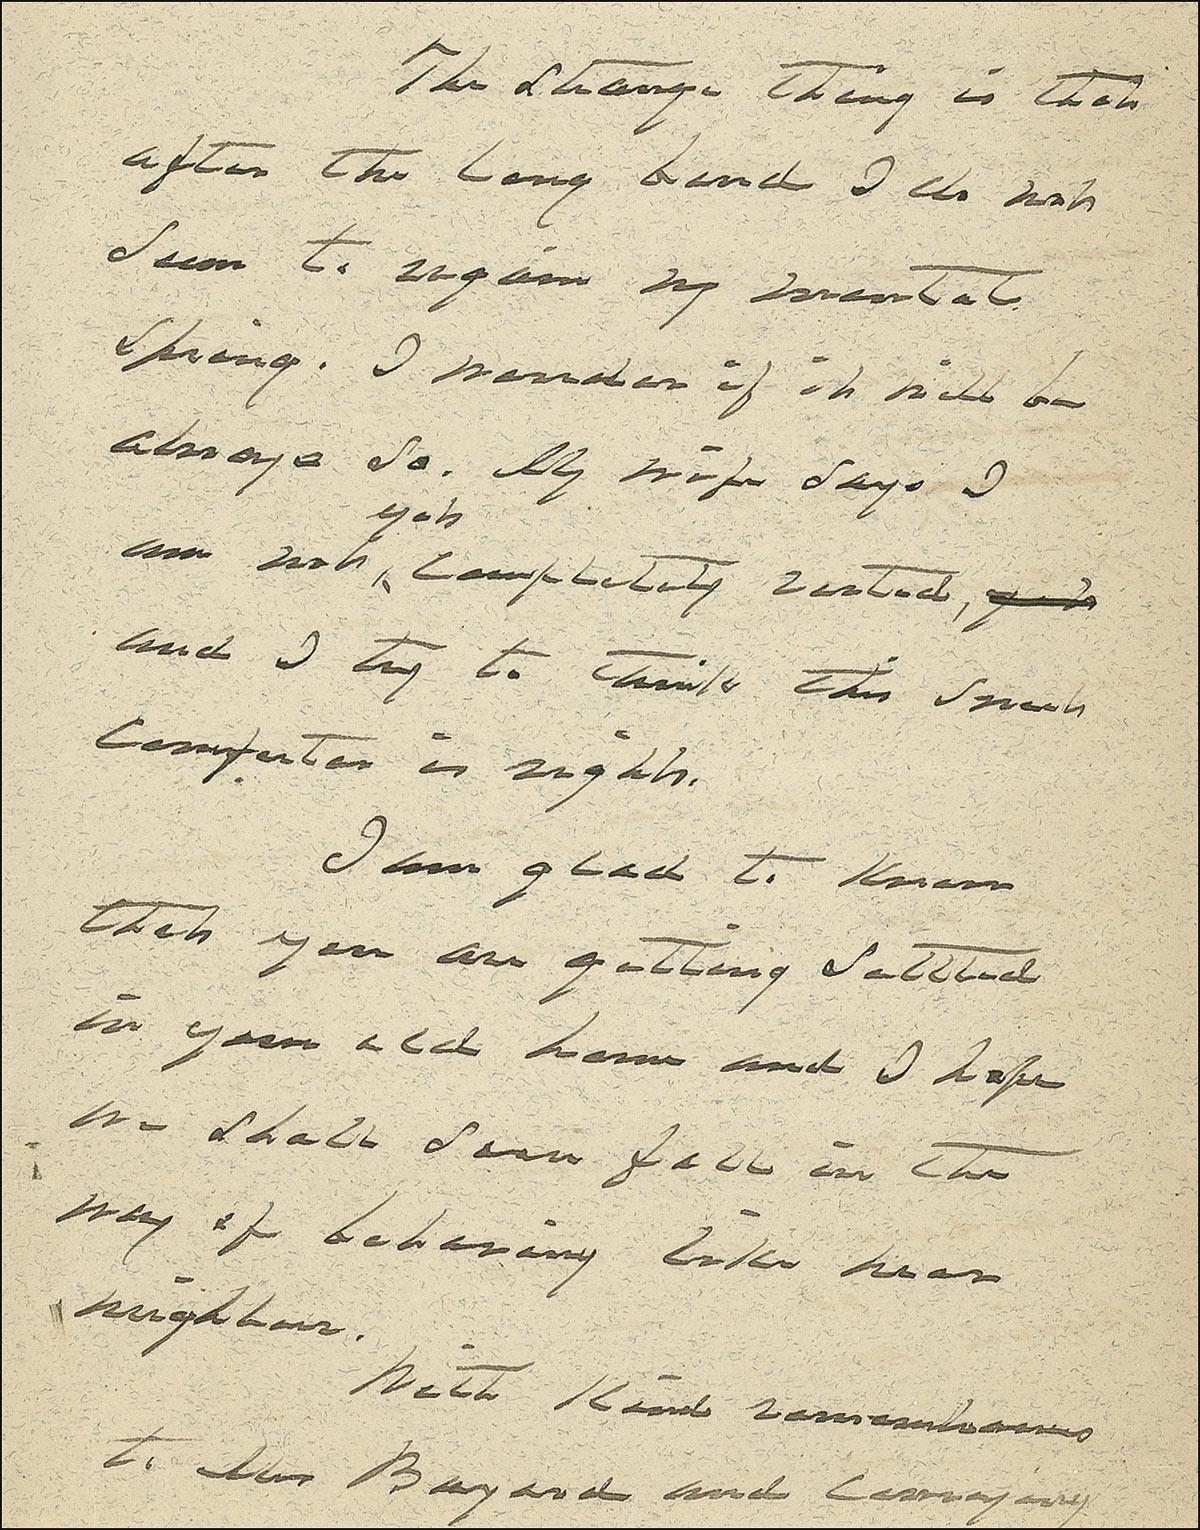 The strange thing is that
after the long bend I do not
seem to regain my mental
spring. I wonder if it will be
always so. My wife says I
yet
am not ^ completely rested, yet
and I try to think this sweet
comforter is right.
I am glad to know
that you are getting settled
in your old home and I hope
we shall soon fall in the
way of behaving like near
neighbors.
With kind remembrances
to Mrs Bayard and